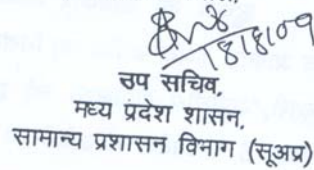 18/8/09
उप सचिव,
मध्य प्रदेश शासन,
सामान्य प्रशासन विभाग (सूअप्र)